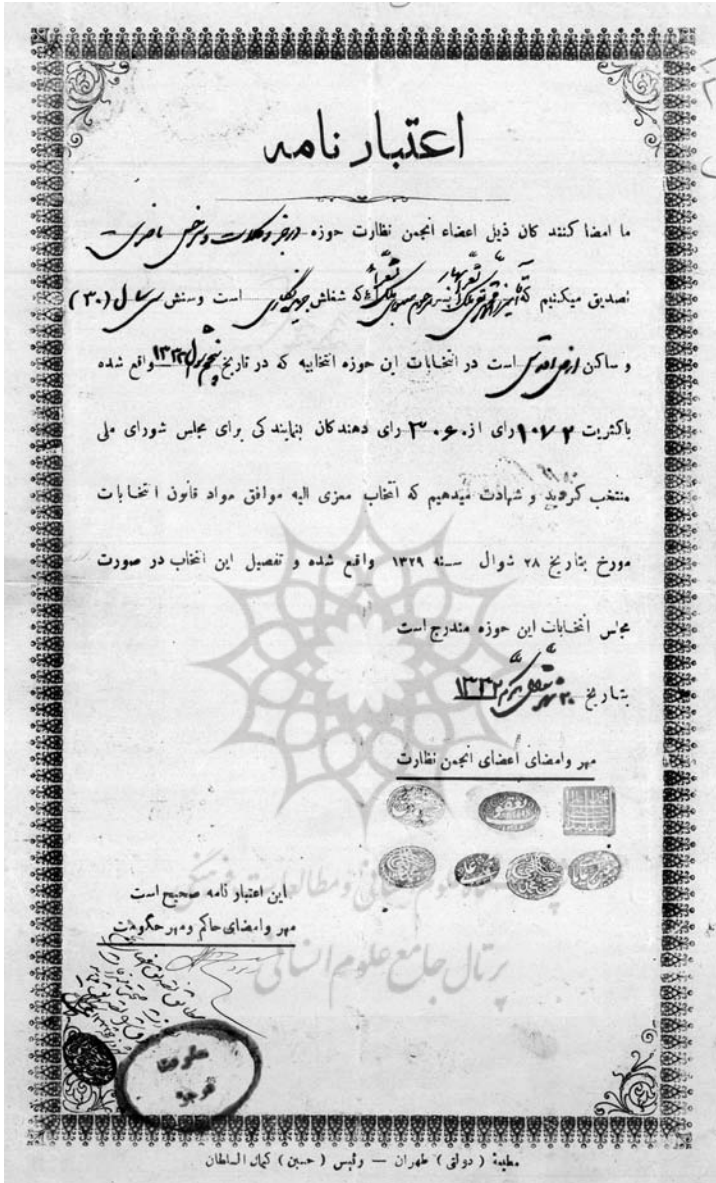 اعتبار نامه
ما امضا کنند کان ذیل اعضاء انجمن نظارت حوزه درجز و کلات و سرخس ناصری
تصدیق میکنیم که آقا میرزا محمد تقی ملک الشعراء بهار پسر مرحوم ملک الشعراء که شغلش است و سنش سی سال (۳۰)
و ساکن ارض اقدس است در انتخابات این حوزه انتخابیه که در تاریخ پنجم ۱۳۳۲ واقع شده
باکثریت ۱۰۷۲ رای از ۳۰۶۰ رای دهندکان بنمایندکی برای مجلس شورای ملی
منتخب کردید و شهادت میدهیم که انتخاب معزی الیه موافق مواد قانون انتخابات
مورخ بتاریخ ۲۸ شوال سنه ۱۳۲۹ واقع شده و تفصیل این انتخاب در صورت
مجلس انتخابات این حوزه مندرج است
بتاریخ ۲۰ شهر ۱۳۳۲
مهر وامضای اعضای انجمن نظارت
این اعتبار نامه صحیح است
مهر وامضای حاکم ومهر حکومت
پژوهشگاه علوم انسانی و مطالعات فرهنگی
پرتال جامع علوم انسانی
حکومت
مطبعهٔ (دولتی) طهران — رئیس (حسین) کمال السلطان